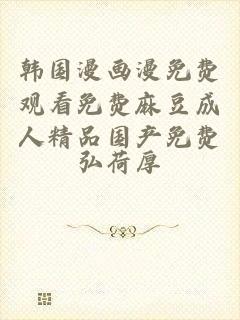 韩国漫画漫免费
观看免费麻豆成
人精品国产免费
弘荷厚